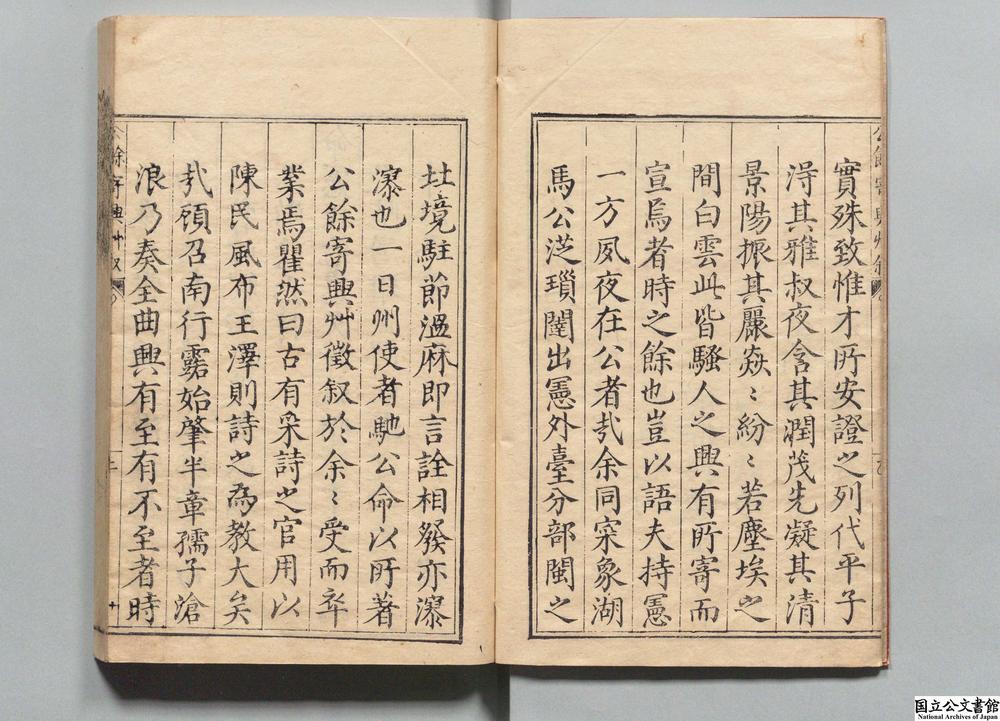 實殊致惟才所安證之列代平子
淂其雅叔夜含其潤茂先凝其清
景陽振其麗焱〻紛〻若塵埃之
間白雲此皆騷人之興有所寄而
宣焉者時之餘也豈以語夫持憲
一方夙夜在公者㢤余同寀象湖
馬公汦瑣闥出憲外臺分部閩之
圵境駐節溫麻即言詮相發亦瀑
瀑也一日州使者馳公命以所著
公餘寄興艸徵叙於余〻受而卒
業焉瞿然曰古有采詩之官用以
陳民風布王澤則詩之為教大矣
㢤頎召南行露始肇半章孺子滄
浪乃奏全曲興有至有不至者時
公餘寄興艸叙
二
国立公文書館
National Archives of Japan